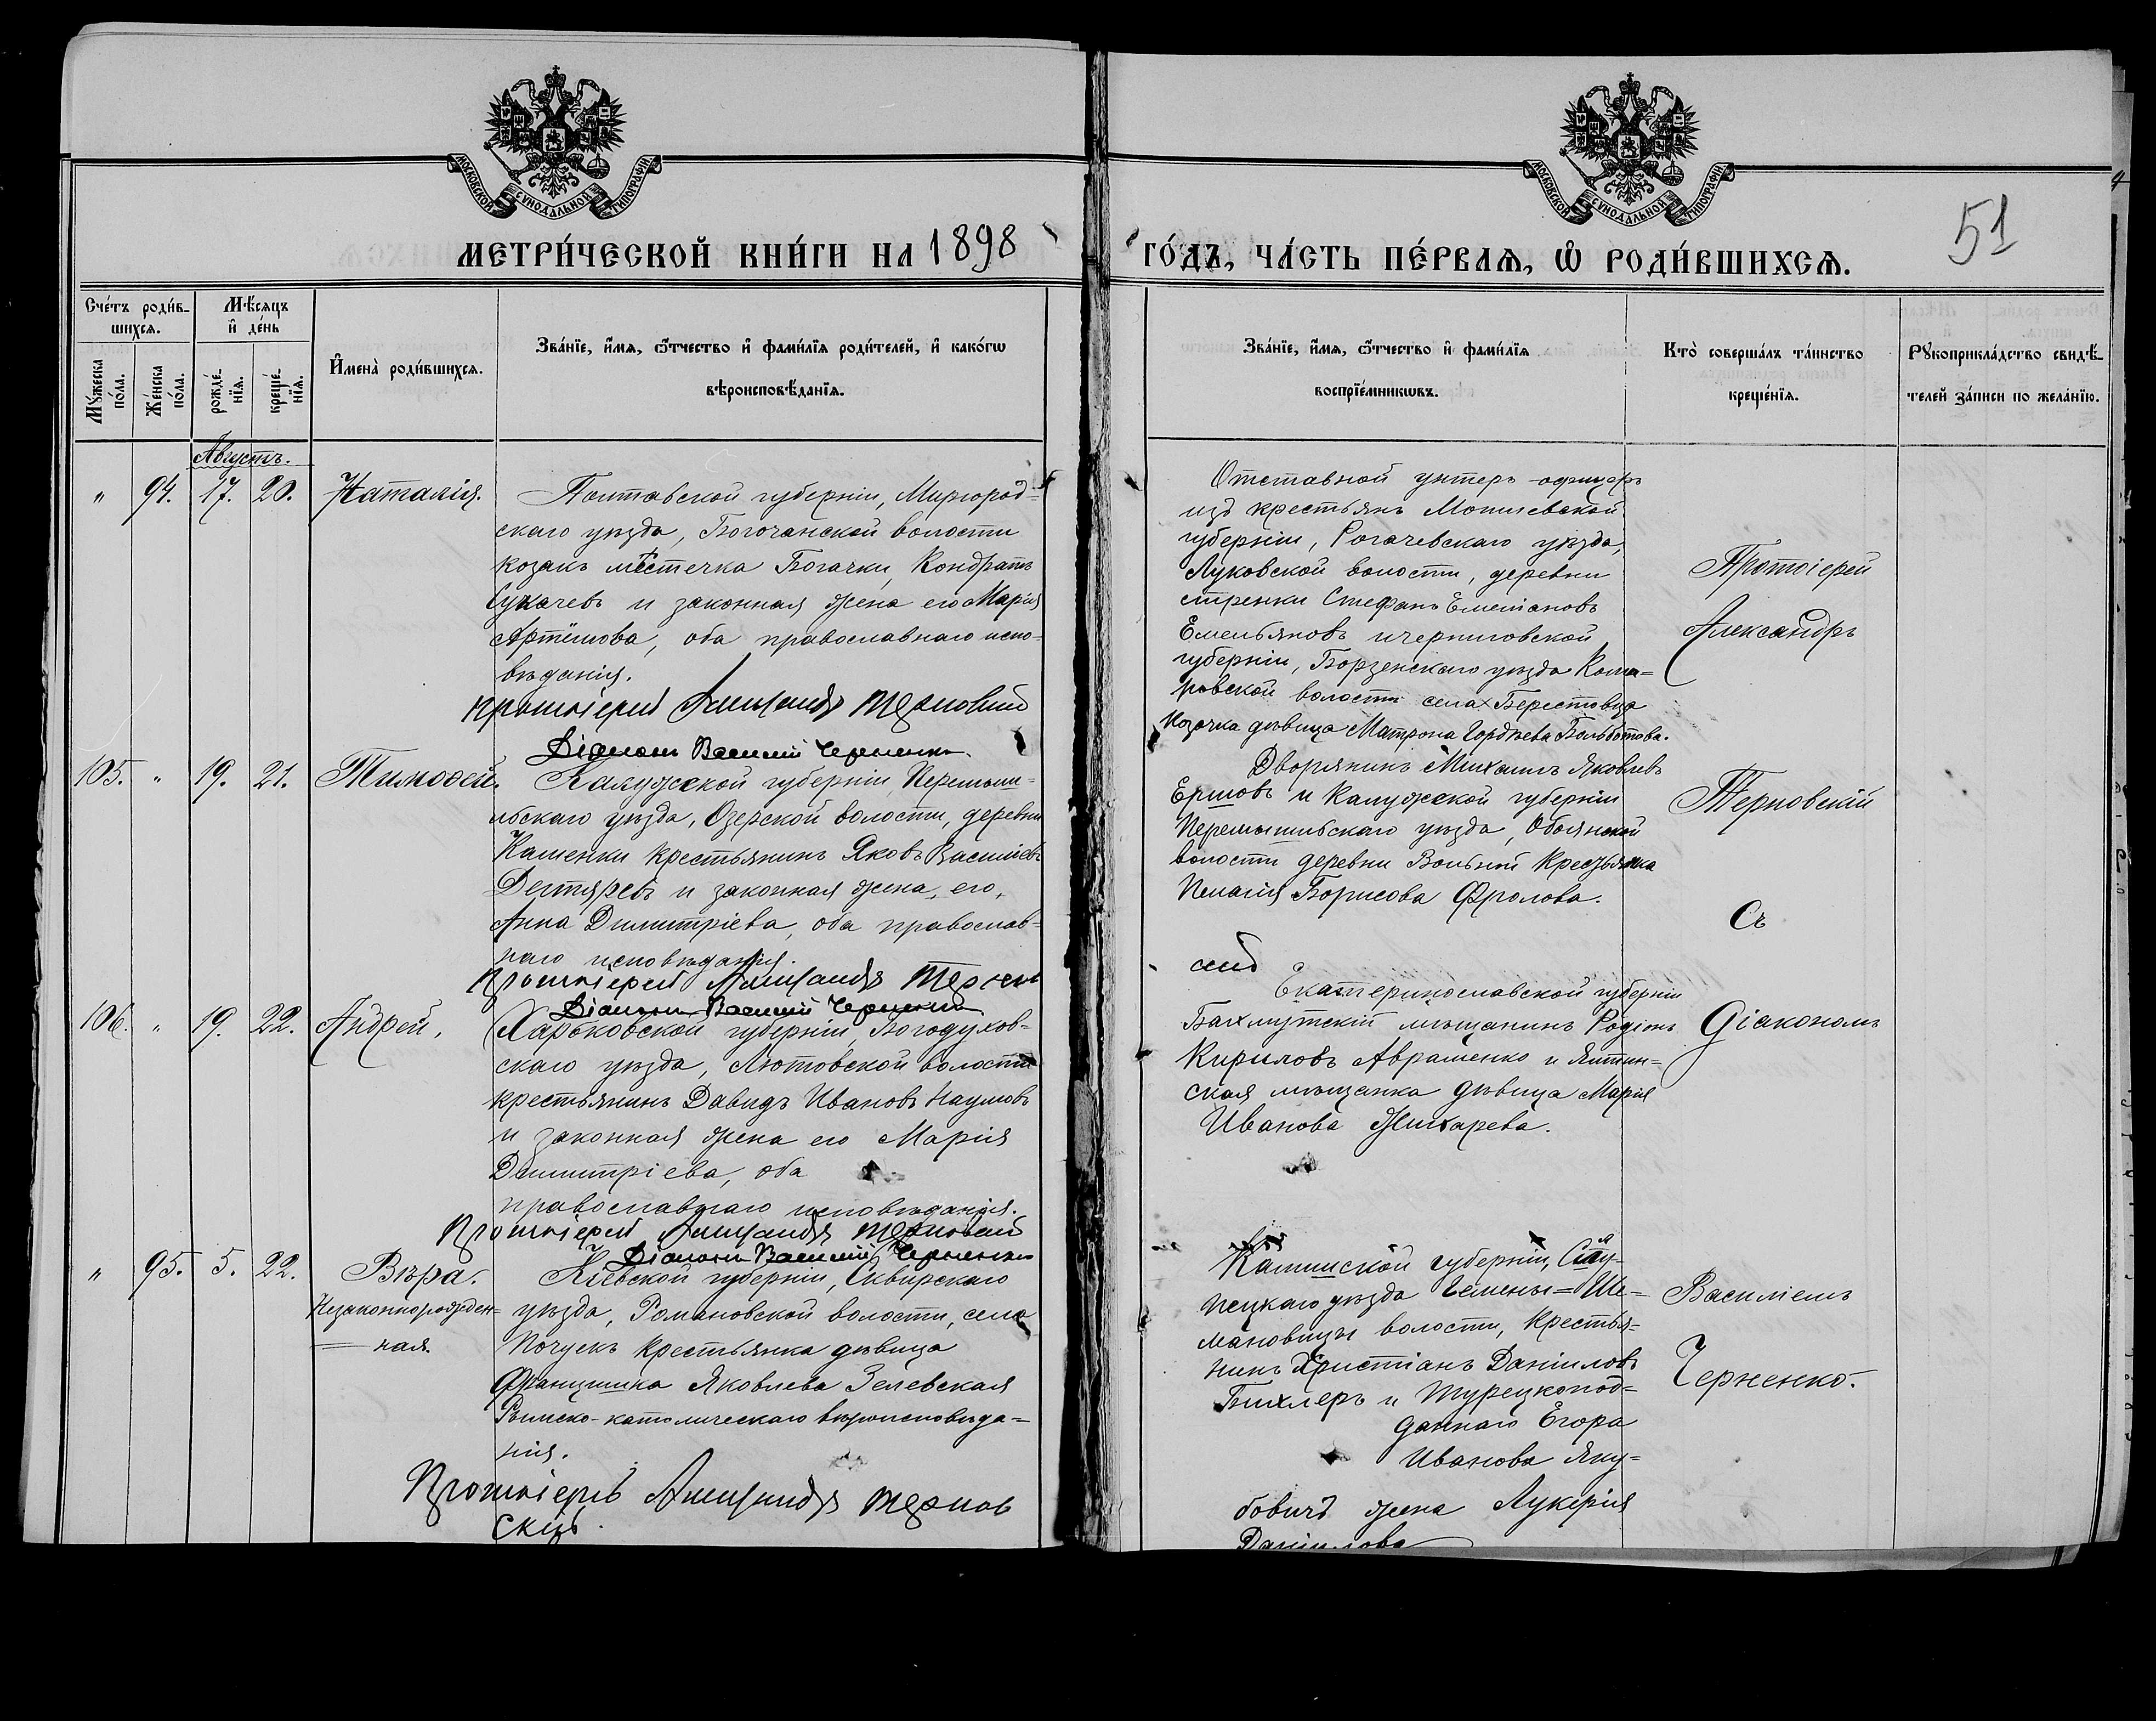 МОСКОВСКОЙ СѴНОДАЛЬНОЙ ТИПОГРАФІИ
МОСКОВСКОЙ СѴНОДАЛЬНОЙ ТИПОГРАФІИ
51
МЕТРИ́ЧЕСКОЙ КНИ́ГИ НА 1898
ГО́ДЪ, ЧА́СТЬ ПЕ́РВАѦ, Ѡ҆ РОДИ́ВШИХСѦ.
Сче́тъ роди́в-
шихсѧ.
Мѣ́сѧцъ
и҆ де́нь
Мꙋ́жеска
по́ла.
Же́нска
по́ла.
рожде́-
нїѧ.
креще́-
нїѧ.
И҆мена̀ роди́вшихсѧ.
Зва́нїе, и҆́мѧ, ѻ҆́тчество и҆ фами́лїѧ роди́телей, и҆ како́гѡ
вѣроисповѣ́данїѧ.
Зва́нїе, и҆́мѧ, ѻ҆́тчество и҆ фами́лїѧ
воспрїе́мникѡвъ.
Кто̀ соверша́лъ та́инство
креще́нїѧ.
Рꙋкоприкла́дство свидѣ́-
телей за́писи по жела́нїю.
Августъ.
" 94. 17. 20. Наталія.
Полтавской губерніи, Миргород-
скаго уѣзда, Богочанской волости
козакъ мѣстечка Богачки, Кондратъ
Сукачевъ и законная жена его Марія
Артёмова, оба православнаго испо-
вѣданія.
Протоіерей Александръ Терновскій
Діаконъ Василій Черненко
Отставной унтеръ-офицеръ
изъ крестьянъ Могилевской
губерніи, Рогачевскаго уѣзда,
Луковской волости, деревни
Стренки Стефанъ Емелiановъ
Емельяновъ и Черниговской
губерніи, Борзенскаго уѣзда Кома-
ровской волости села Берестовца
козачка дѣвица Матрона Гордѣева Больботова.
Протоіерей
Александръ
105. " 19. 21. Тимофей.
Калужской губерніи, Перемы-
шльскаго уѣзда, Озерской волости, деревни
Каменки крестьянинъ Яковъ Васильевъ
Дегтяревъ и законная жена его,
Анна Димитріева, оба православ-
наго исповѣданія.
Протоіерей Александръ Терновс
Діаконъ Василій Черненко
Дворянинъ Михаилъ Яковлевъ
Ершовъ и Калужской губерніи
Перемышльскаго уѣзда,
волости деревни крестьянка
Пелагія Борисова Фролова.
Терновскій
Съ
106. " 19. 22. Андрей,
Харьковской губерніи, Богодухов-
скаго уѣзда, Лютовской волости
крестьянинъ Давидъ Ивановъ Наумовъ
и законная жена его Марія
Димитріева, оба
православнаго исповѣданія.
Протоіерей Александръ Терновскій
Діаконъ Василій Черненко
Екатеринославской губерніи
Бахмутскій мѣщанинъ Родіонъ
Кириловъ Авраменко и Ялтин-
ская мѣщанка дѣвица Марія
Иванова Жихарева.
Діакономъ
" 95. 5. 22. Вѣра.
Незаконнорожден-
ная.
Кіевской губерніи, Сквирскаго
уѣзда, Романовской волости, села
Почуекъ крестьянка дѣвица
Францишка Яковлева Зелевская
Римско-католическаго вѣроисповѣда-
нія.
Протоіерей Александръ Тернов
скій.
Калишской губерніи, Слу-
пецкаго уѣзда
волости, крестья-
нинъ Христіанъ Даніиловъ
Бихлеръ и Турецкопод-
даннаго Егора
Иванова Яку-
бовичъ жена Лукерія
Даніилова
Василіемъ
Черненко.